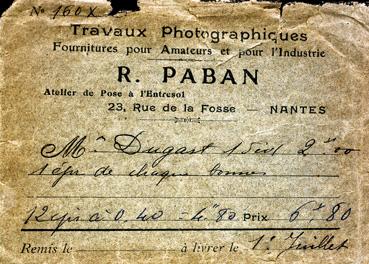 No 160 X
Travaux Photographiques
Fournitures pour Amateurs et pour l'Industrie
R. PABAN
Atelier de Pose à l'Entresol
23, Rue de la Fosse — NANTES
Mr Dugast 2 00
1 épr de chaque bonnes
12 eprs à 0,40 = 4,80 Prix 6f,80
Remis le à livrer le 1r Juillet